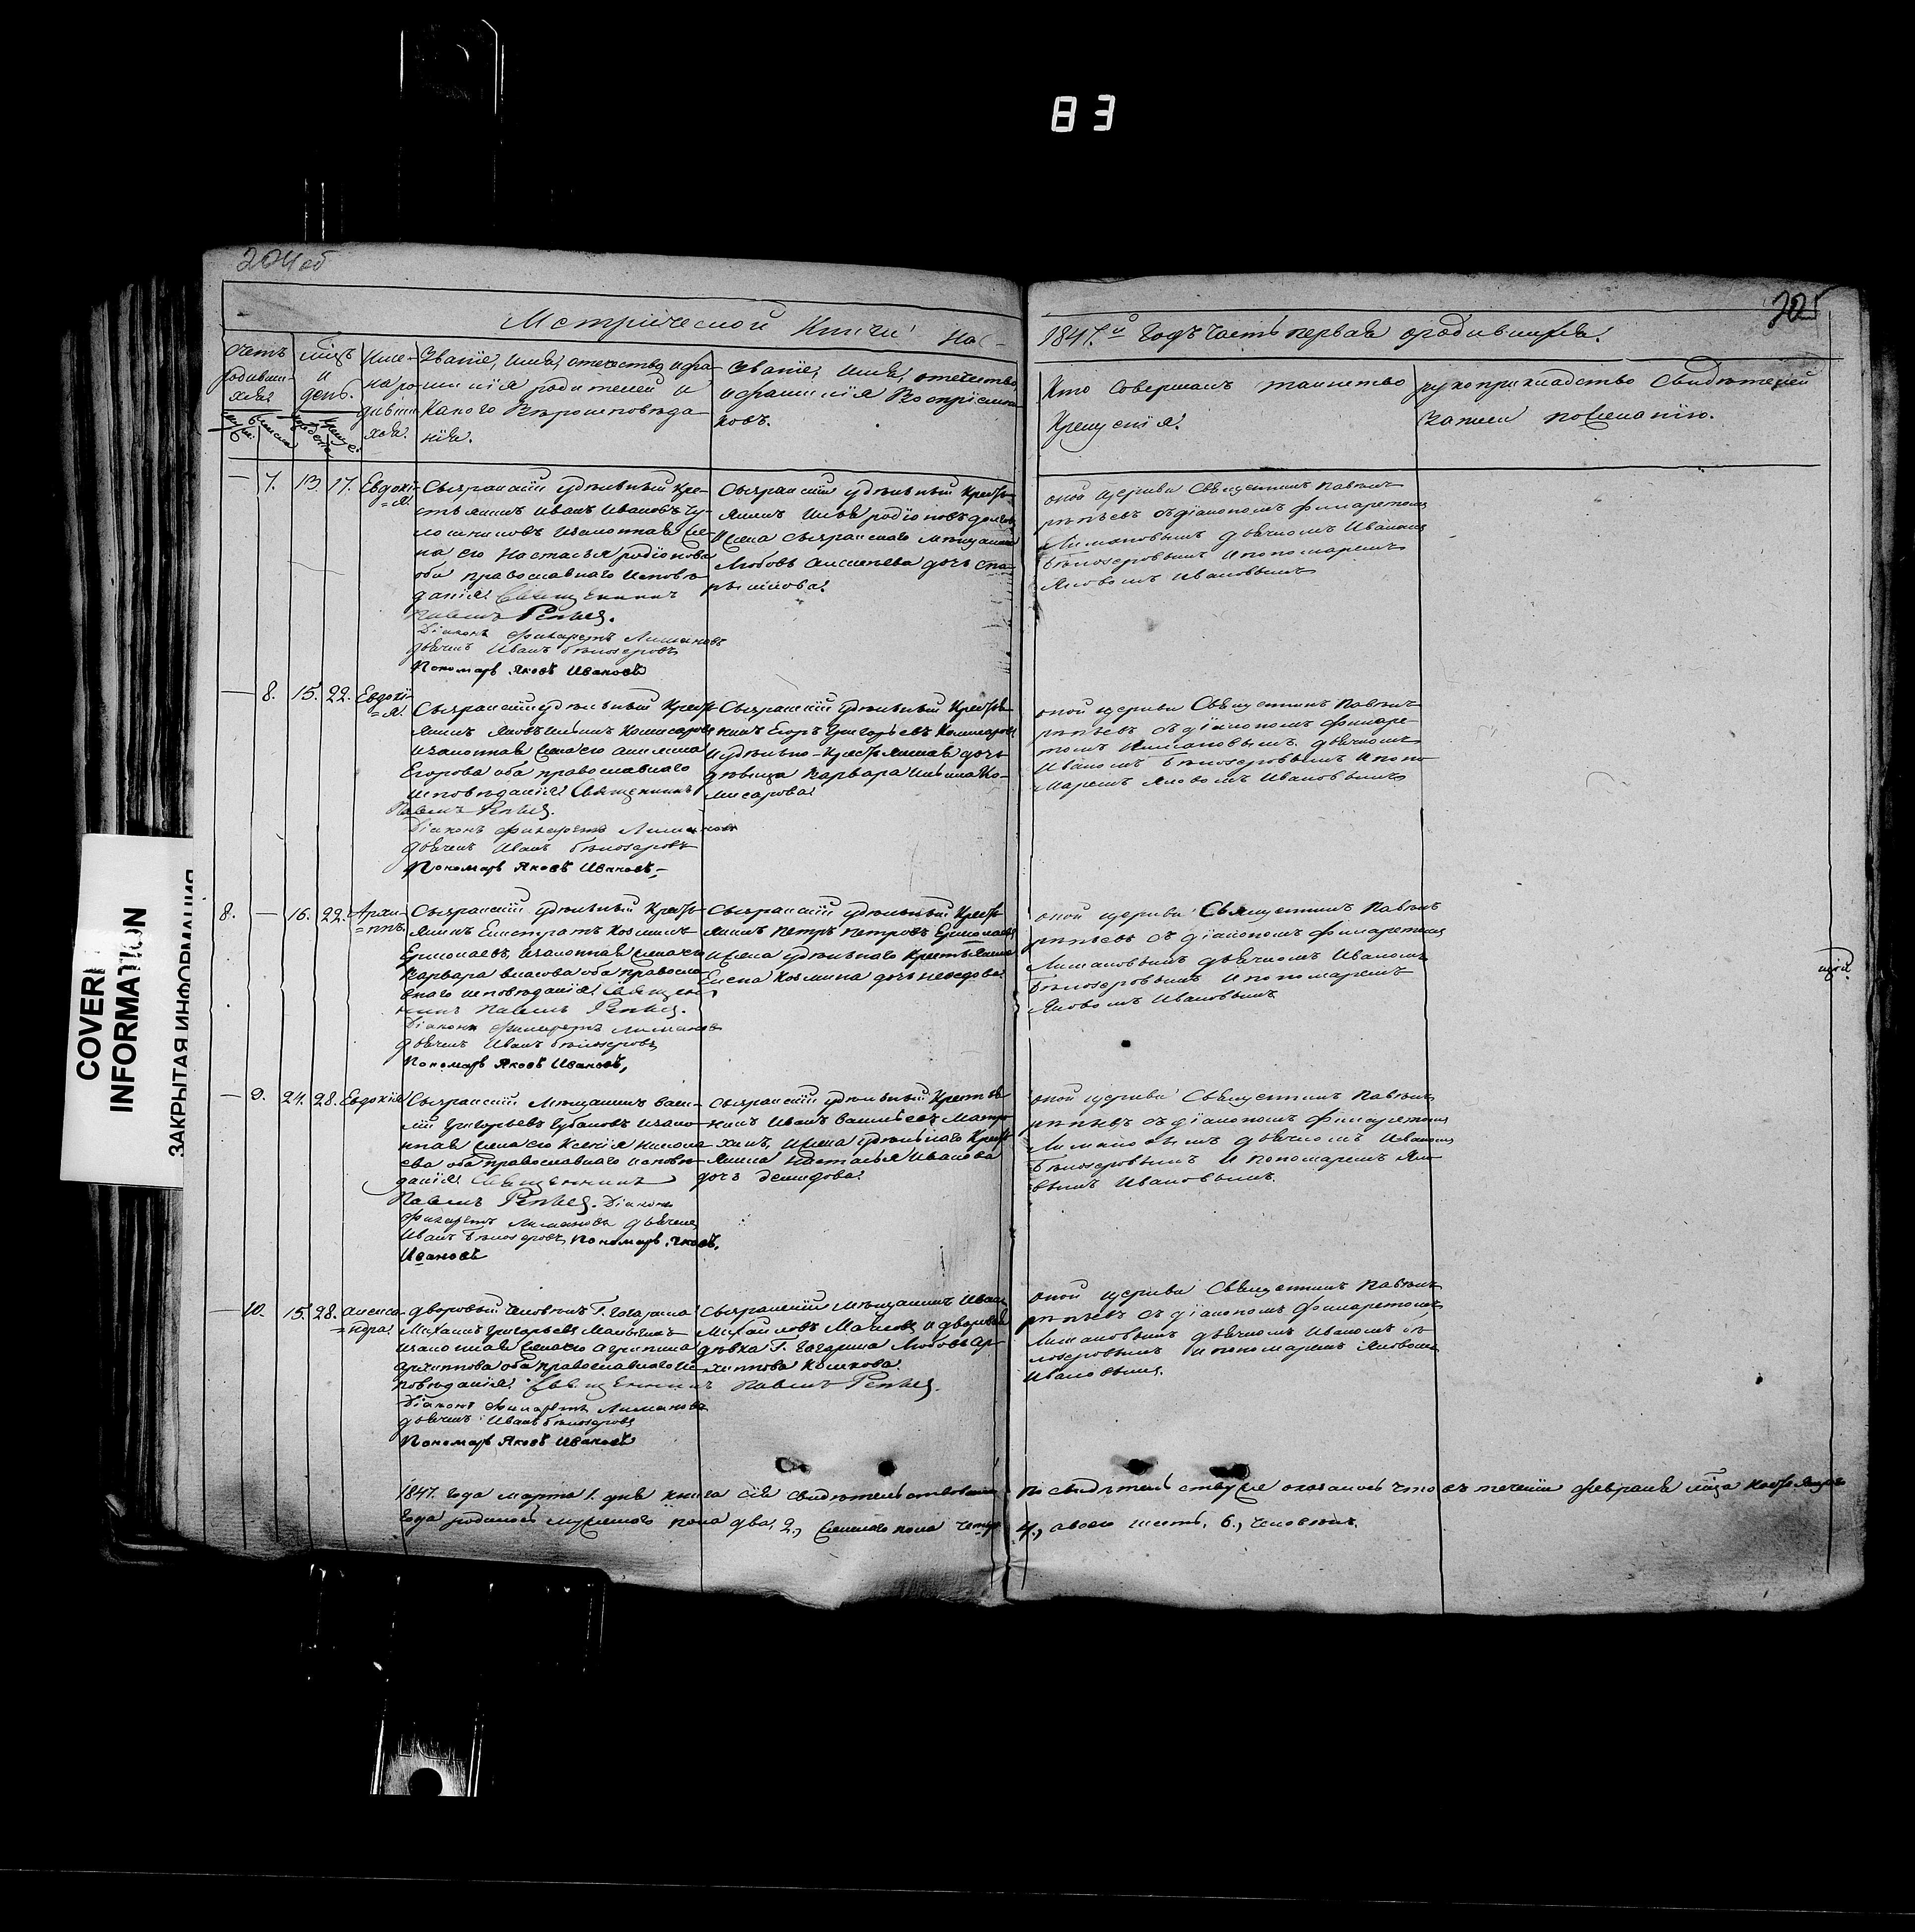 83
204 об
205
Метрической Книги на
1847.й Годъ Часть первая о родившихся.
Счетъ родивших-
хся.
мѣсяцъ
и
день.
Име-
на ро-
дивши
хся.
Званіе, имя, отечество, и фа-
милія родителей и
какого Вѣроисповѣда-
нія.
Званіе, имя отечество
и фамилія Воспріемни-
ковъ.
Кто Совершалъ таинство
Крещенія.
рукоприкладство Свидѣтелей
записи по желанію.
— 7. 13. 17. Евдокі-
=я.
Сызранскій удѣльный кре-
стьянинъ Иванъ Ивановъ
и законная же-
на его Настасья родіонова
оба православнаго исповѣ-
данія. Священникъ
Павелъ Рѣпьев.
Діаконъ Филаретъ Лимановъ
дьячекъ Иванъ бѣлозеровъ
Пономарь Яковъ Ивановъ
Сызранскій удѣльный крестья-
янинъ Илья родіоновъ
и жена сызранскаго мѣщанина
Любовь Алексѣева дочь
оной церкви Священникъ Павелъ
рѣпьевъ съ діакономъ филаретомъ
Лимановымъ дьячкомъ Иваномъ
бѣлозеровымъ и пономаремъ
Яковомъ Ивановымъ
— 8. 15. 22. Евдокі-
=я.
Сызранскій удѣльный крестья-
янинъ Яковъ Ильинъ Комисаровъ
и законная жена его Акилина
Егорова оба православнаго
исповѣданія. Священникъ
Павелъ Рѣпьев.
Діаконъ Филаретъ Лимановъ
дьячекъ Иванъ бѣлозеровъ
Пономарь Яковъ Ивановъ,
Сызранскій удѣльный крестья-
нинъ Егоръ Григорьевъ Комисаровъ
и удѣльно-крестьянская дочь
дѣвица Варвара Ильина Ко-
мисарова.
оной церкви Священникъ Павелъ
рѣпьевъ съ діакономъ филаре-
томъ Лимановымъ дьячкомъ
Иваномъ бѣлозеровымъ и поно-
маремъ Яковомъ Ивановымъ
8. — 16. 22. Архи-
=ппъ
Сызранскій удѣльный крестья-
янинъ Елистратъ Козминъ
Ермолаевъ, и законная жена его
Варвара власова оба правосла-
внаго исповѣданія. Священ-
никъ Павелъ Рѣпьев.
Діаконъ Филаретъ Лимановъ
дьячекъ Иванъ бѣлозеровъ
Пономарь Яковъ Ивановъ,
Сызранскій удѣльный крестья-
янинъ Петръ Петровъ Ермолаевъ
и жена удѣльнаго крестьянина
Елена Козмина дочь
оной церкви Священникъ Павелъ
рѣпьевъ съ діакономъ филаретомъ
Лимановымъ дьячкомъ Иваномъ
бѣлозеровымъ и пономаремъ
Яковомъ Ивановымъ
— 9. 24. 28. Евдокія
Сызранскій мѣщанинъ васи-
лій Григорьевъ Губановъ и зако-
нная жена его Ксенія никола-
ева оба православнаго исповѣ-
данія. Священникъ
Павелъ Рѣпьев. Діаконъ
Филаретъ Лимановъ дьячекъ
Иванъ бѣлозеровъ Пономарь Яковъ,
Ивановъ
Сызранскій удѣльный крестья-
нинъ Иванъ Васильевъ
и жена удѣльнаго крестья-
янина Настасья Иванова
дочь демидова.
оной церкви Священникъ Павелъ
рѣпьевъ съ діакономъ филаретомъ
Лимановымъ дьячкомъ Иваномъ
бѣлозеровымъ и пономаремъ Яко-
вымъ Ивановымъ.
— 10. 15. 28. Алекса-
=ндра.
дворовый человѣкъ Г. Гагарина
Михаилъ Григорьевъ
и законная жена его Агрипина
архиппова оба православнаго ис-
повѣданія. Священникъ Павелъ Рѣпьев.
Діаконъ Филаретъ Лимановъ
дьячекъ Иванъ бѣлозеровъ
Пономарь Яковъ Ивановъ
Сызранскій мѣщанинъ Иванъ
Михайловъ и дворовая
дѣвка Г. Гагарина Любовь ар-
хиппова
оной церкви Священникъ Павелъ
рѣпьевъ съ діакономъ филаретомъ
Лимановымъ дьячкомъ Иваномъ бѣ-
лозеровымъ и пономаремъ Яковомъ
Ивановымъ.
1847. года марта 1. дня книга сія свидѣтельствована по свидѣтельству же оказалось что въ теченіи февраля мѣсяца настоящаго
года родилось мужескаго пола два, 2., женскаго пола четыре 4., а всего шесть, 6., человѣкъ.
COVERI
INFORMATION
ЗАКРЫТАЯ ИНФОРМАЦИЯ